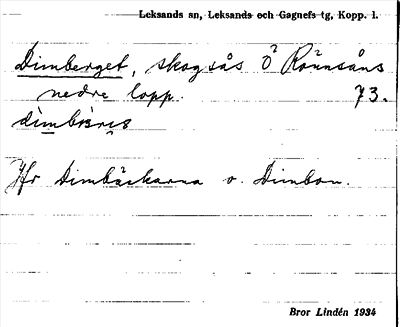 Leksands sn, Leksands och Gagnefs tg, Kopp. l.
Dimberget, skogsås Ö Rönnsåns
nedre lopp. 73.
Jfr Dimbäckarna o. Dimbon.
Bror Lindén 1934